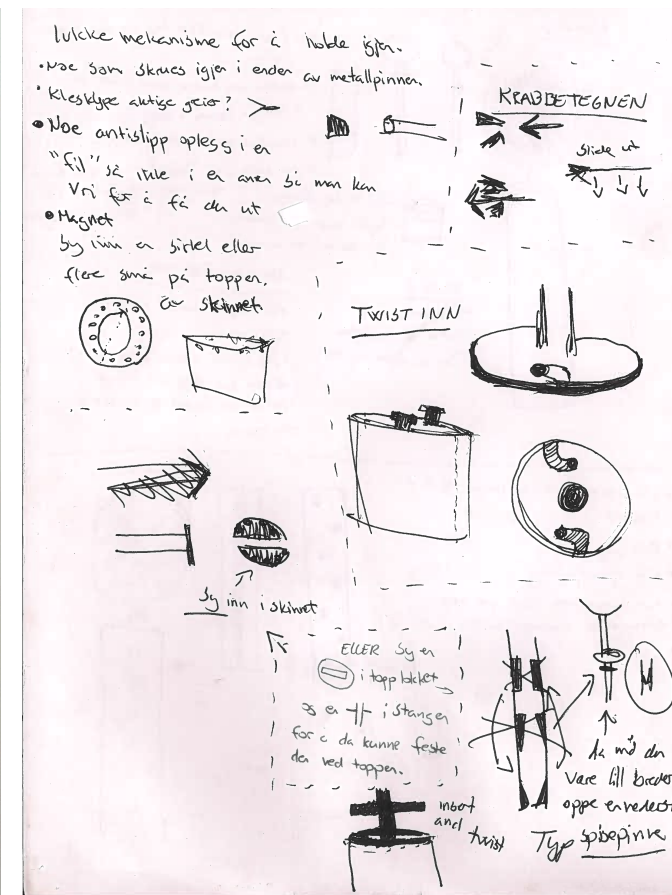 lukke mekanisme for å holde igjen.
• Noe som skrues igjen i enden av metallpinnen.
• Klesklype aktige greier?
• Noe antislipp opplegg i en
"fil" så inne i en annen så man kan
Vri for å få den ut
• Magnet
Sy inn en sirkel eller
flere små på toppen.
av skinnet.
KRABBETEGNEN
Slide ut
TWIST INN
Sy inn i skinnet
ELLER Sy en
i topplokket
og en i Stangen
for å da kunne feste
den ved toppen.
insert
and twist
da må den
være litt breder
oppe en nederst
Typ spisepinne